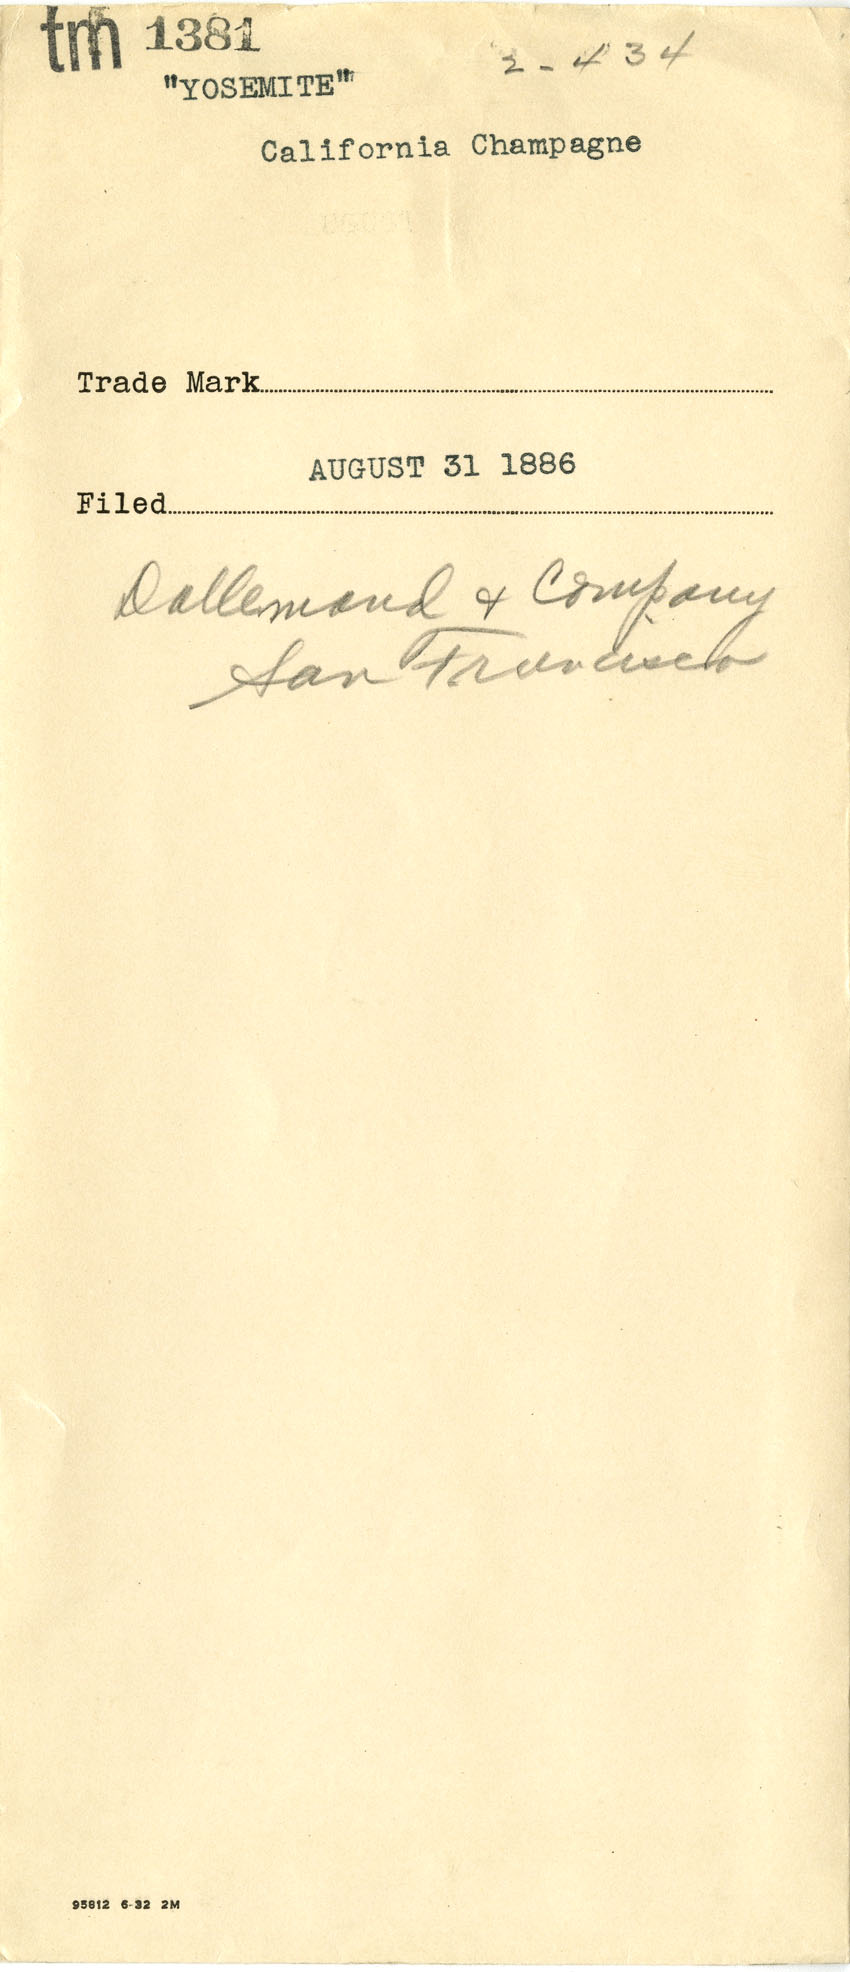 tm 1381 2-434
"YOSEMITE"
California Champagne
Trade Mark
AUGUST 31 1886
Filed
Dallemand & Company
San Francisco
95812 6-32 2M